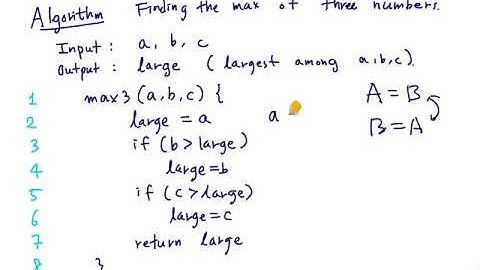 Algorithm Finding the max of three numbers.
Input : a, b, c
Output : large ( largest among a,b,c).
1 max3 (a,b,c) {
2 large = a
3 if (b > large)
4 large=b
5 if (c > large)
6 large=c
7 return large
8 }
a
A = B
B = A